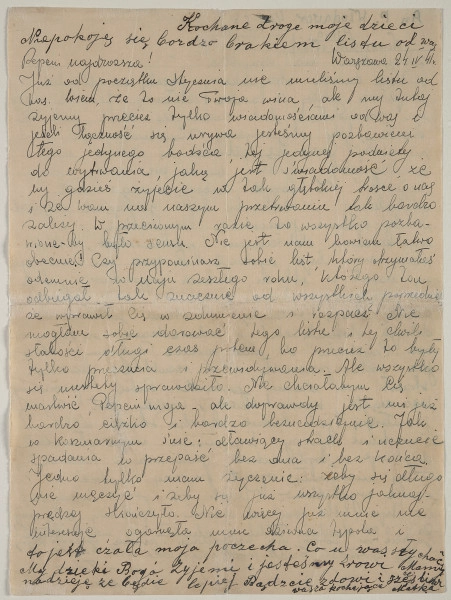 Kochane drogie moje dzieci
Niepokoję się bardzo brakiem listu od was
Warszawa 24.IV.41.
Pepciu najdroższa!
Już od początku stycznia nie mieliśmy listu od
Was. Wiem, że to nie Twoja wina, ale my tutaj
żyjemy przecież tylko wiadomościami od Was i
jeśli łączność się urywa jesteśmy pozbawieni
tego jedynego bodźca, tej jedynej podniety
do wytrwania, jaką jest świadomość, że
wy gdzieś żyjecie w tak głębokiej trosce o nas
i że wam na naszym przetrwaniu tak bardzo
zależy. W przeciwnym razie to wszystko pozba-
wione by było sensu. Nie jest nam bowiem łatwo
obecnie! Czy przypominasz sobie list, który otrzymałaś
odemnie w maju zeszłego roku, którego ton
odbiegał tak znacznie od wszystkich poprzednich
że wprawił Cię w zdumienie i rozpacz? Nie
mogłam sobie darować tego listu i tej chwili
słabości długi czas potem, bo przecież to były
tylko przeczucia i przewidywania. Ale wszystko
się niestety sprawdziło. Nie chciałabym Cię
martwić Pepciu moja, ale doprawdy jest mi już
bardzo ciężko i bardzo beznadziejnie. Jak
w koszmarnym śnie: dławiący strach i
spadania w przepaść bez dna i bez końca.
Jedno tylko mam życzenie: żeby się długo
nie męczyć i żeby się już wszystko jaknaj-
prędzej skończyło. Nic więcej już mnie nie
interesuje ogarnęła mnie dziwna i
to jest cała moja pociecha. Co u was słychać
My dzięki Boga żyjemi i jesteśmy zrowi Mamy
nadzieję że będzie lepiej Bądzcie zdowi i
wasza kochająca Matka